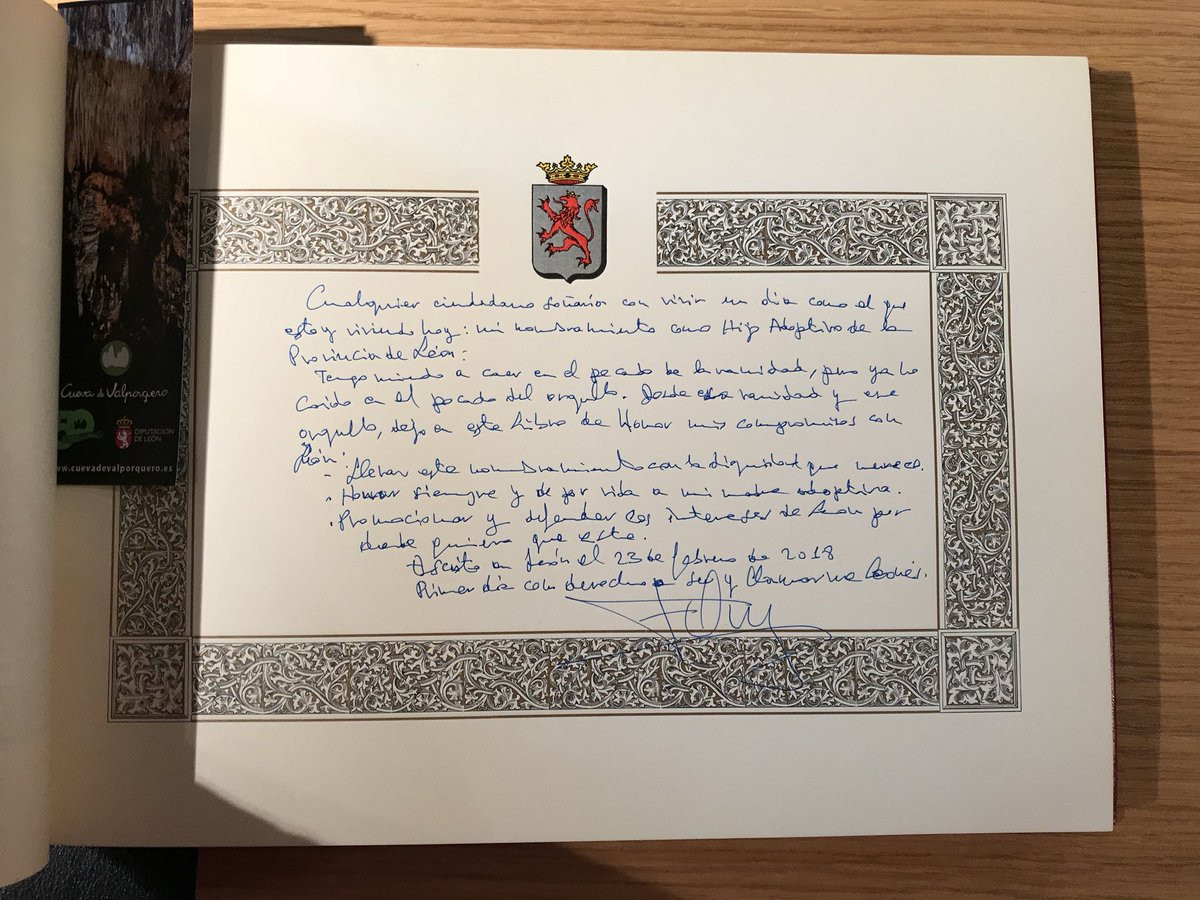 Cualquier ciudadano soñaría con vivir un día como el que
estoy viviendo hoy: mi nombramiento como Hijo Adoptivo de la
Provincia de León:
Tengo miedo a caer en el pecado de la vanidad, pero ya he
caído en el pecado del orgullo. Desde esa vanidad y ese
orgullo, dejo en este Libro de Honor mis compromisos con
León:
- Llevar este nombramiento con la dignidad que merece.
· Honrar siempre y de por vida a mi madre adoptiva.
· Promocionar y defender los intereses de León por
donde quiera que esté.
Escrito en León el 23 de febrero de 2018
Primer día con derecho a ser y llamarme Leonés.
Cueva de Valporquero
DIPUTACIÓN
DE LEÓN
www.cuevadevalporquero.es